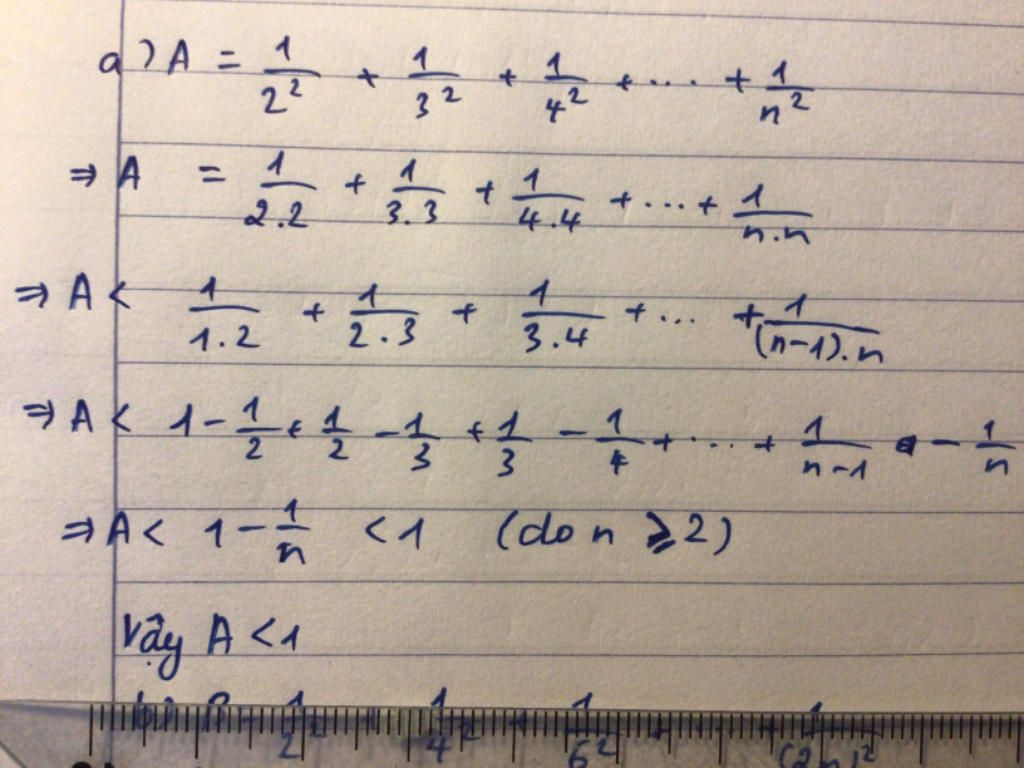 a) A = 1/2² + 1/3² + 1/4² + .... + 1/n²
⇒ A = 1/2.2 + 1/3.3 + 1/4.4 + ... + 1/n.n
⇒ A < 1/1.2 + 1/2.3 + 1/3.4 + ... + 1/(n-1).n
⇒ A < 1 - 1/2 + 1/2 - 1/3 + 1/3 - 1/4 + ... + 1/n-1 - 1/n
⇒ A < 1 - 1/n < 1 (do n ≥ 2)
Vậy A < 1
1/2² 1/4² + 1/6² 1/(2n)²